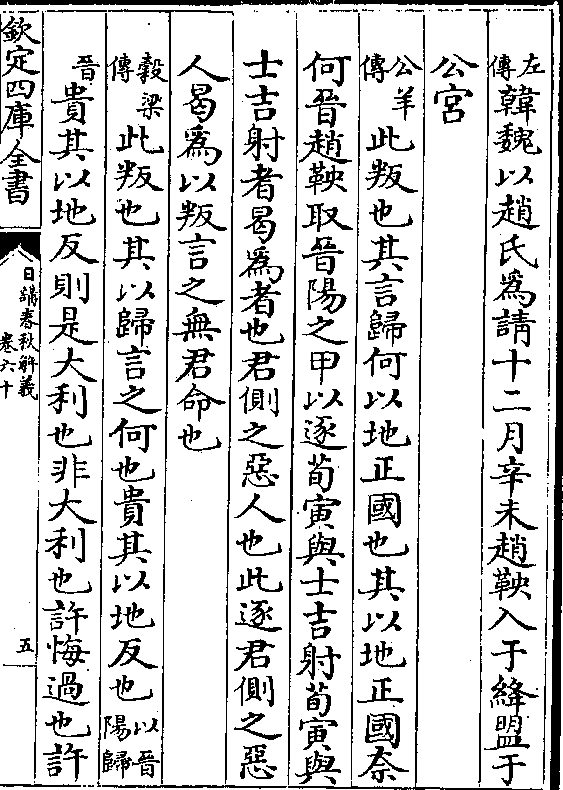 左傳韓魏以趙氏爲請十二月辛未趙鞅入于絳盟于
公宮
公羊傳此叛也其言歸何以地正國也其以地正國奈
何晉趙鞅取晉陽之甲以逐荀寅與士吉射荀寅與
士吉射者曷爲者也君側之惡人也此逐君側之惡
人曷爲以叛言之無君命也
穀梁傳此叛也其以歸言之何也貴其以地反也以晉陽歸
晉貴其以地反則是大利也非大利也許悔過也許
欽定四庫全書
日講春秋解義
卷六十
五